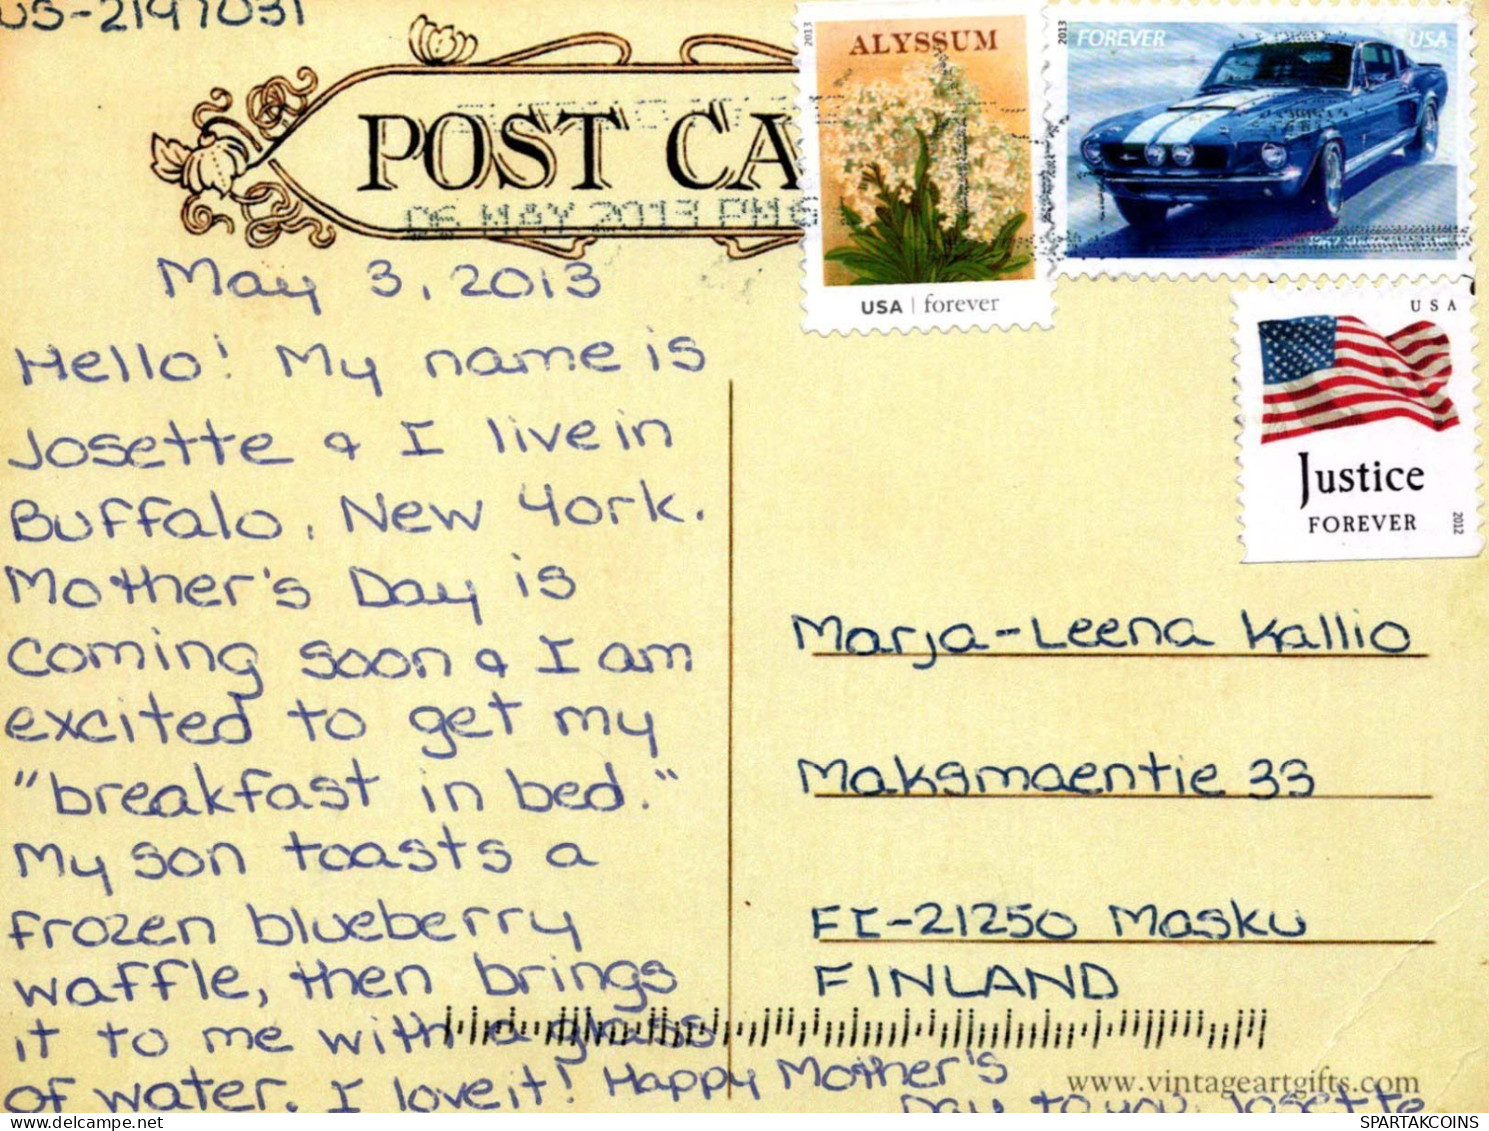 US-2197031
POST CA
06 MAY 2013 PM
2013
ALYSSUM
USA | forever
2013
FOREVER
USA
USA
Justice
FOREVER
2012
May 3, 2013
Hello! My name is
Josette & I live in
Buffalo, New York.
Mother's Day is
coming soon & I am
excited to get my
"breakfast in bed."
My son toasts a
frozen blueberry
waffle, then brings
it to me with a glass
of water. I love it! Happy Mother's
Day to you, Josette
Marja-Leena Kallio
Maksmaentie 33
FI-21250 Masku
FINLAND
www.vintageartgifts.com
hippostcard.com
SPARTAKCOINS